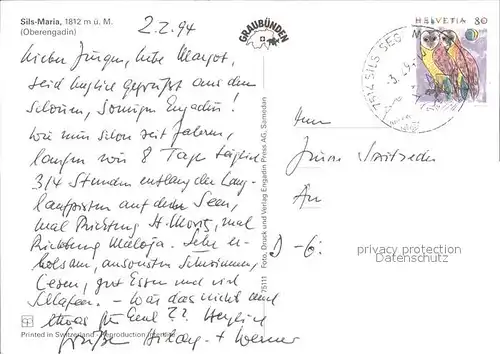 Sils-Maria, 1812 m ü. M.
(Oberengadin)
2.2.94
Lieber Jürgen, liebe Margot,
seid herzlich gegrüßt aus dem
schönen, sonnigen Engadin!
Wie nun schon seit Jahren,
langen wir 8 Tage täglich
3/4 Stunden entlang der Lang-
laufpisten auf dem Seen,
mal Richtung St. Moritz, mal
Richtung Maloja. Sehr er-
holsam, ansonsten Schwimmen,
Lesen, gut Essen und viel
Schlafen. – Wär das nicht auch
etwas für Euch?? Herzliche
Grüße Helga + Werner
Printed in Switzerland - Reproduction
GRAUBÜNDEN
75111 Foto, Druck und Verlag Engadin Press AG, Samedan
HELVETIA 80
7514 SILS SEG M
An
D-6
privacy protection
Datenschutz